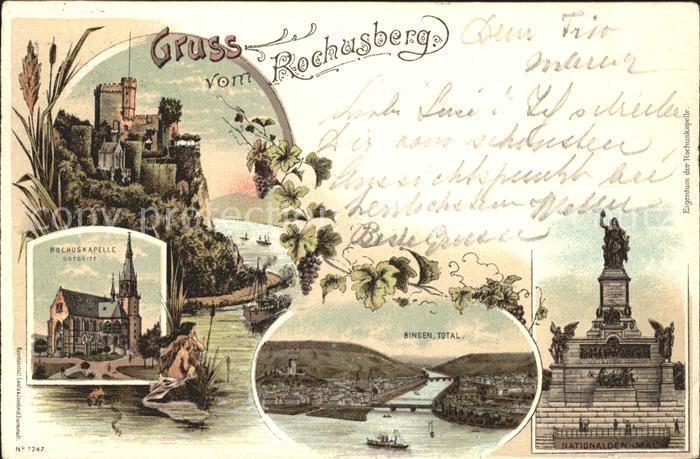 Gruss
vom Rochusberg.
Liebe Susi! Ich schreibe
dir vom schönsten
Aussichtspunkt bei
herrlichstem Wetter
Beste Grüsse
Eigentum der Rochuskapelle.
ROCHUSKAPELLE
OSTSEITE
BINGEN, TOTAL.
NATIONALDENKMAL
No 1247.